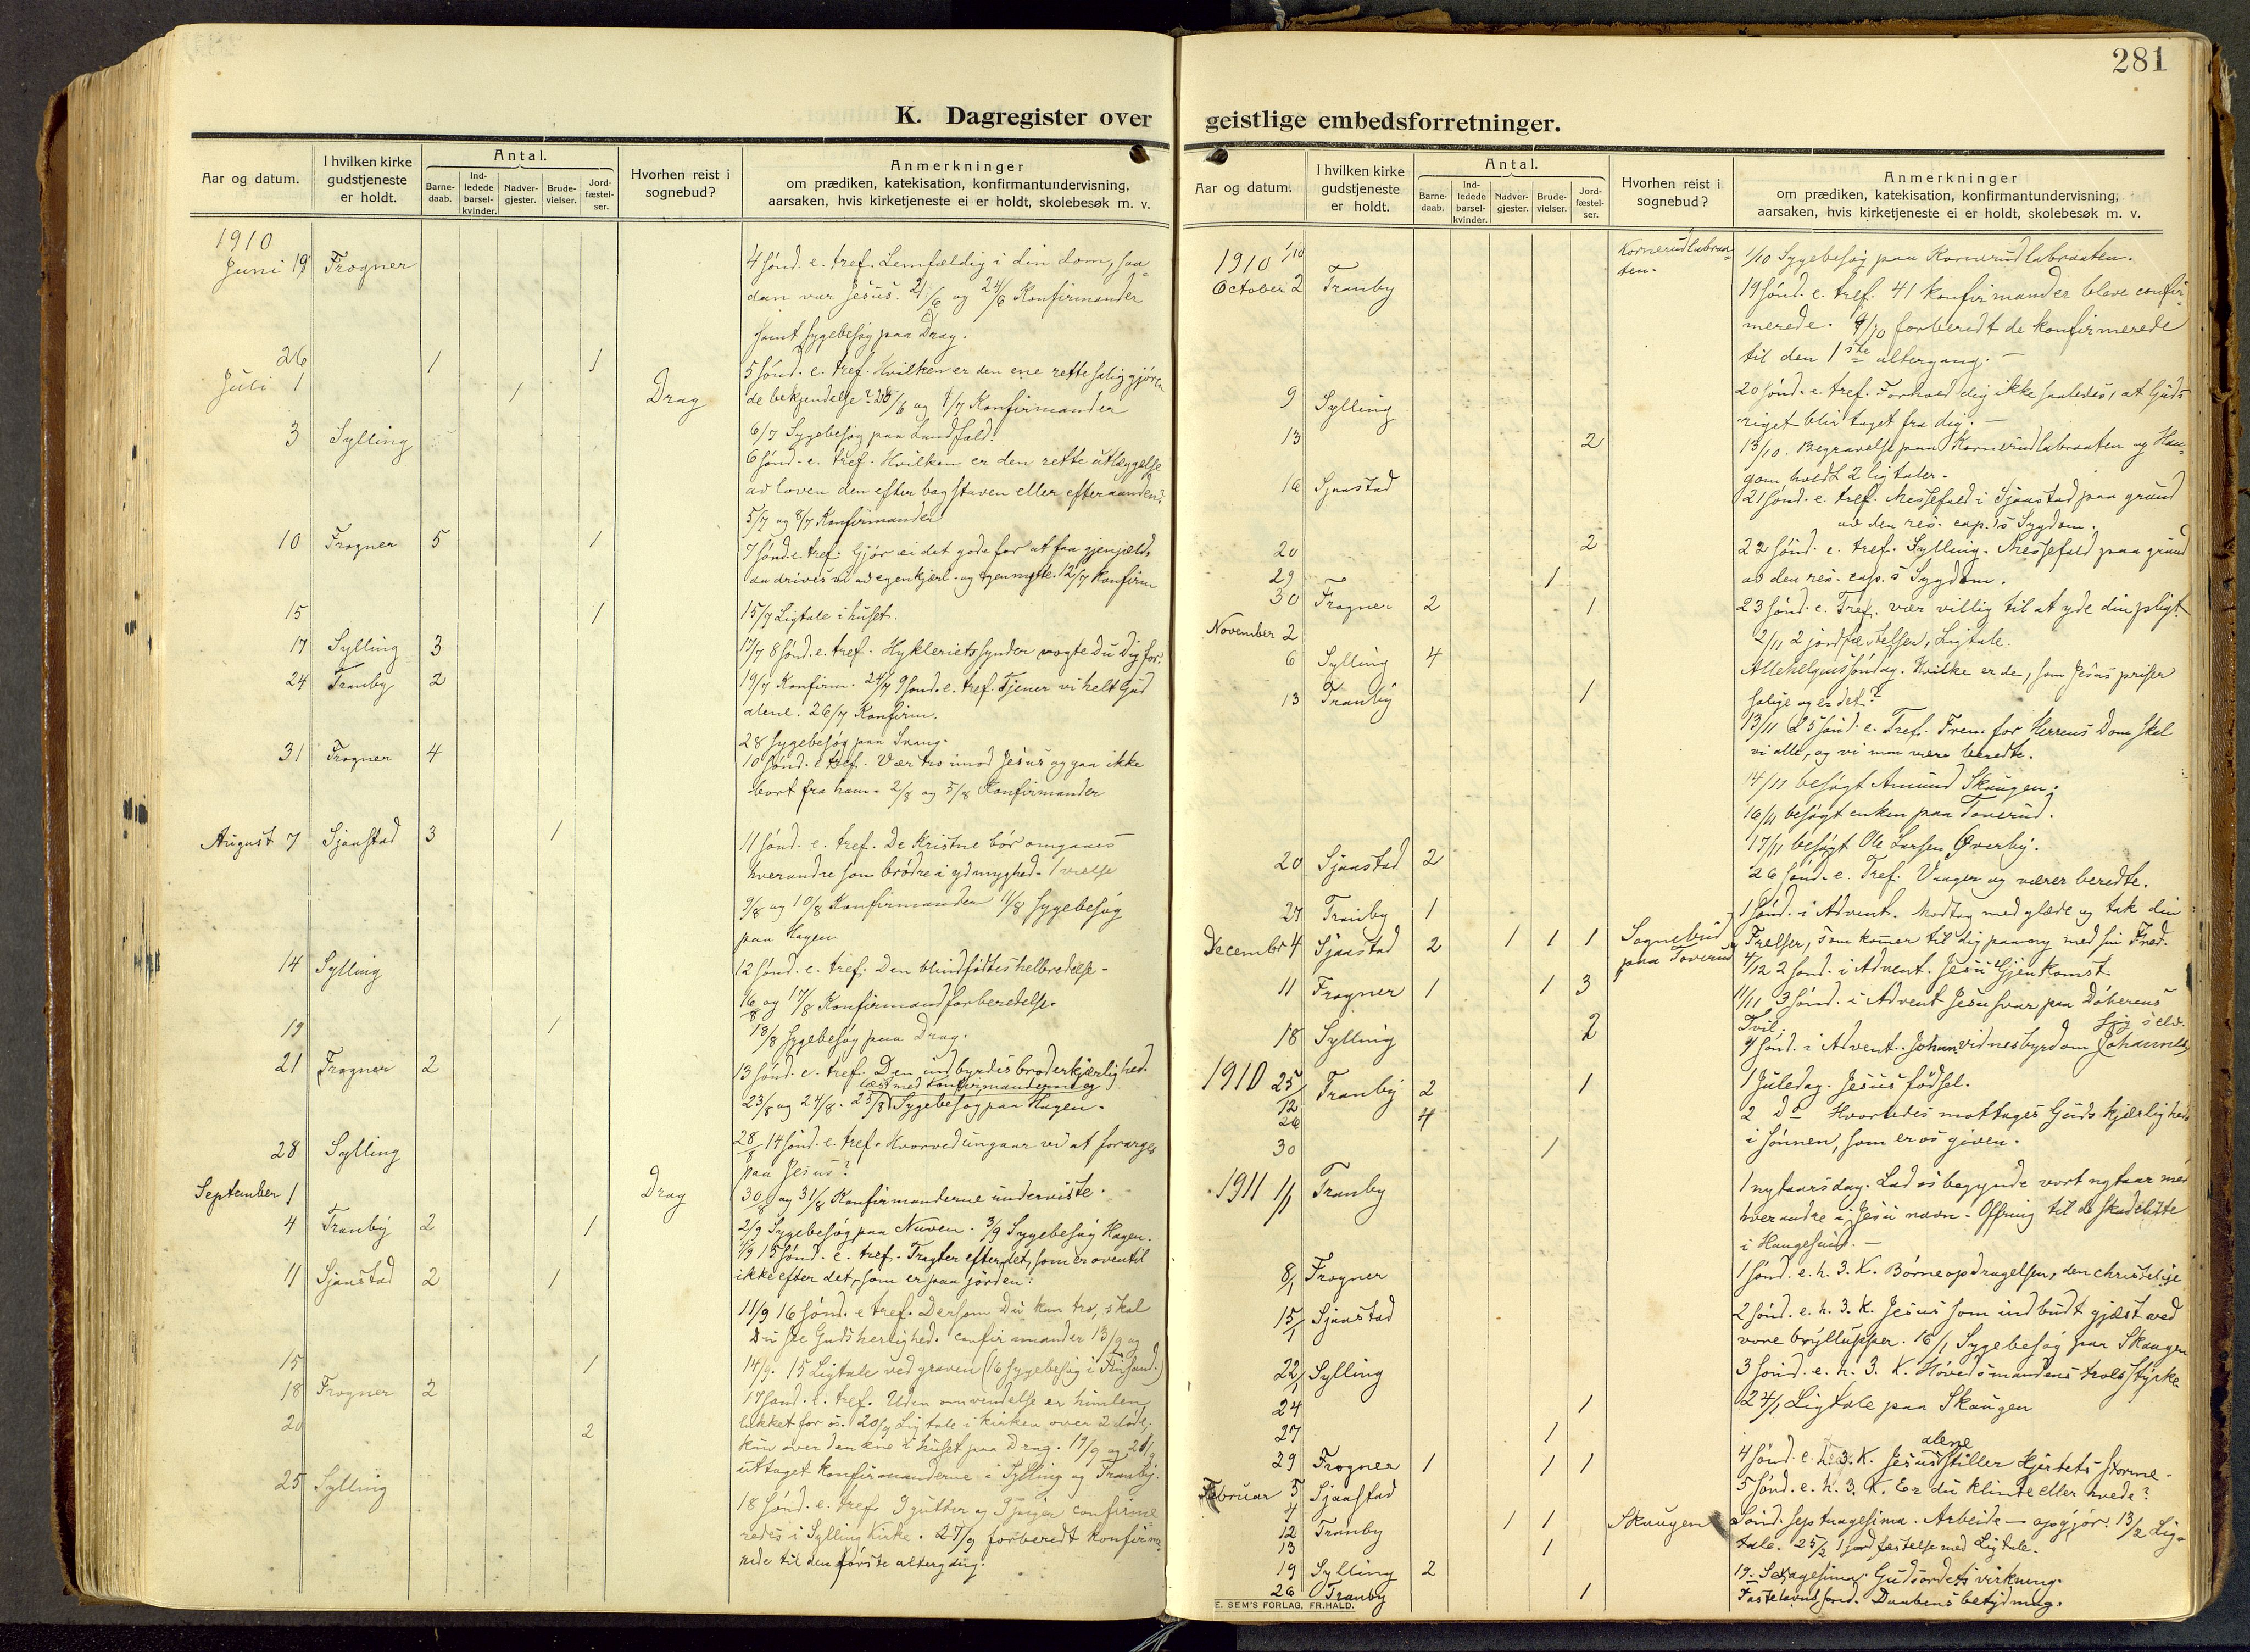 281
K. Dagregister over
Aar og datum.
I hvilken kirke
gudstjeneste
er holdt.
Antal.
Barne-
daab.
Ind-
ledede
barsel-
kvinder.
Nadver-
gjester.
Brude-
vielser.
Jord-
fæstel-
ser.
Hvorhen reist i
sognebud?
Anmerkninger
om prædiken, katekisation, konfirmantundervisning,
aarsaken, hvis kirketjeneste ei er holdt, skolebesøk m. v.
1910
Juni 19 Frogner 4 Sønd. e. tref. Lemfældig i din dom, saa-
dan var Jesus. 21/6 og 24/6 Konfirmander
samt sygebesøg paa Drag.
26 1 1 5 Sønd. e. tref. Hvilken er den ene rette saliggjøren-
Juli 1 1 Drag de bekjendelse? 28/6 og 1/7 Konfirmander
3 Sylling 6/7 Sygebesøg paa Landfald.
6 Sønd. e. tref. Hvilken er den rette utlæggelse
av loven den efter bogstaven eller efter aanden?
5/7 og 8/7 Konfirmander
10 Frogner 5 1 7 Sønd. e. tref. Gjør ei det gode for at faa gjengjæld,
da drives vi av egenkjærl. og egennytte. 12/7 Konfirm
15 1 15/7 Ligtale i huset.
17 Sylling 3 17/7 8 Sønd. e. tref. Hykleriets synder vogte Du Dig for.
24 Tranby 2 19/7 Konfirm. 24/7 9 Sønd. e. tref. Tjener vi helt Gud
alene. 26/7 Konfirm.
28 Sygebesøg paa Svang.
31 Frogner 4 10 Sønd. e. tref. Vær tro imod Jesus og gaa ikke
bort fra ham. 2/8 og 5/8 Konfirmander
August 7 Sjaastad 3 1 11 Sønd. e. tref. De Kristne bør omgaaes
hverandre som brødre i ydmyghed. 1 vielse
9/8 og 10/8 Konfirmander 11/8 Sygebesøg
paa Hagen
14 Sylling 12 Sønd. e. tref. Den blindfødtes helbredelse.
16/8 og 17/8 Konfirmandforberedelse.
19 1 18/8 Sygebesøg paa Drag.
21 Frogner 2 13 Sønd. e. tref. Den indbyrdes broderkjærlighed.
læst med konfirmanderne og
23/8 og 24/8. 25/8 Sygebesøg paa Hagen.
28 Sylling 28/8 14 Sønd. e. tref. Hvorved undgaar vi at forarges
paa Jesus?
September 1 Drag 30/8 og 31/8 Konfirmanderne underviste.
4 Tranby 2 1 2/9 Sygebesøg paa Nuven. 3/9 Sygebesøg Hagen.
4/9 15 Sønd. e. tref. Tragter efter det, som er oventil
11 Sjaastad 2 1 ikke efter det, som er paa jorden.
11/9 16 Sønd. e. tref. Dersom Du kan tro, skal
Du se Guds herlighed. confirmander 13/9 og
15 1 14/9. 15 Ligtale ved graven (16 Sygebesøg i
18 Frogner 2 17 Sønd. e. tref. Uden omvendelse er himlen
20 2 lukket for os. 20/9 Ligtale i kirken over 2 døde,
kun over den ene i huset paa Drag. 19/9 og 21/9
uttaget konfirmanderne i Sylling og Tranby.
25 Sylling 18 Sønd. e. tref. 9 gutter og 9 piger confirme-
redes i Sylling Kirke. 27/9 forberedt konfirme-
rede til den første altergang.
geistlige embedsforretninger.
Aar og datum.
I hvilken kirke
gudstjeneste
er holdt.
Antal.
Barne-
daab.
Ind-
ledede
barsel-
kvinder.
Nadver-
gjester.
Brude-
vielser.
Jord-
fæstel-
ser.
Hvorhen reist i
sognebud?
Anmerkninger
om prædiken, katekisation, konfirmantundervisning,
aarsaken, hvis kirketjeneste ei er holdt, skolebesøk m. v.
1910 1/10 Kornerudlabraa-
ten. 1/10 Sygebesøg paa Kornerudlabraaten.
October 2 Tranby 19 Sønd. e. tref. 41 Konfirmander bleve confir-
merede. 4/10 forberedt de konfirmerede
til den 1ste altergang. —
9 Sylling 20 Sønd. e. tref. Forhold dig ikke saaledes, at Guds
riget blir taget fra dig. —
13 2 13/10. Begravelse paa Kornerudlabraaten og Hau-
gom, holdt 2 ligtaler.
16 Sjaastad 21 Sønd. e. tref. Messefald i Sjaastad paa grund
av den res. cap.'s Sygdom.
20 2 22 Sønd. e. tref. Sylling. Messefald paa grund
29 1 av den res. cap.s Sygdom.
30 Frogner 2 1 23 Sønd. e. Tref. vær villig til at yde din pligt.
November 2 2/11 2 jordfæstelser, Ligtale.
6 Sylling 4 Allehelgensøndag. Hvilke er de, som Jesus priser
13 Tranby 1 salige og er det?
13/11 25 Sønd. e. Tref. Frem for Herrens Dom skal
vi alle, og vi maa være beredte.
14/11 besøgt Amund Skaugen.
16/11 besøgt enken paa Toverud.
17/11 besøgt Ole Larsen Øverby.
20 Sjaastad 2 26 Sønd. e. Tref. Vaager og værer beredte.
27 Tranby 1 1 Sønd. i Advent. Modtag med glæde og tak din
December 4 Sjaastad 2 1 1 1 Sognebud
paa Toverud Frelser, som kommer til dig paany med sin Fred.
4/12 2 Sønd. i Advent. Jesu Gjenkomst.
11 Frogner 1 1 3 11/11 3 Sønd. i Advent Jesu svar paa Døberens
Tvil.
18 Sylling 2 4 Sønd. i Advent. Johan. vidnesbyrd om sig selv.
1910 25/12 Tranby 2 1 1 Juledag. Jesus fødsel.
26 4 2 Do Hvorledes mottages Guds kjærlighed
30 1 i Sønnen, som er os given.
1911 1/1 Tranby 1 nytaarsdag. Lad os begynde vort nytaar med
hverandre i Jesu navn. Offring til de skadelidte
i Haugesund. —
8/1 Frogner 1 Sønd. e. h. 3. K. Børneopdragelsen, den christelige
15/1 Sjaastad 2 Sønd. e. h. 3. K. Jesus som indbudt gjæst ved
vore bryllupper. 16/1 Sygebesøg paa Skaugen
22/1 Sylling 3 Sønd. e. h. 3. K. Høvedsmandens troes styrke.
24 1 24/1 Ligtale paa Skaugen
27 1
29 Frogner 1 1 1 4 Sønd. e. h. 3. K. Jesus alene stiller Hjertets storme.
Februar 5 Sjaastad 5 Sønd. e. h. 3. K. Er du klinte eller hvede?
7 1 1 Skaugen Sønd. Septuagesima. Arbeide — opgjør. 13/2 Lig-
12 Tranby
13 1 tale. 25/2 1 jordfæstelse med Ligtale.
19 Sylling 2 19. Sexagesima. Gudsordets virkning.
26 Tranby 1 Fastelavnssønd. Daabens betydning.
E. SEM'S FORLAG, FR.HALD.